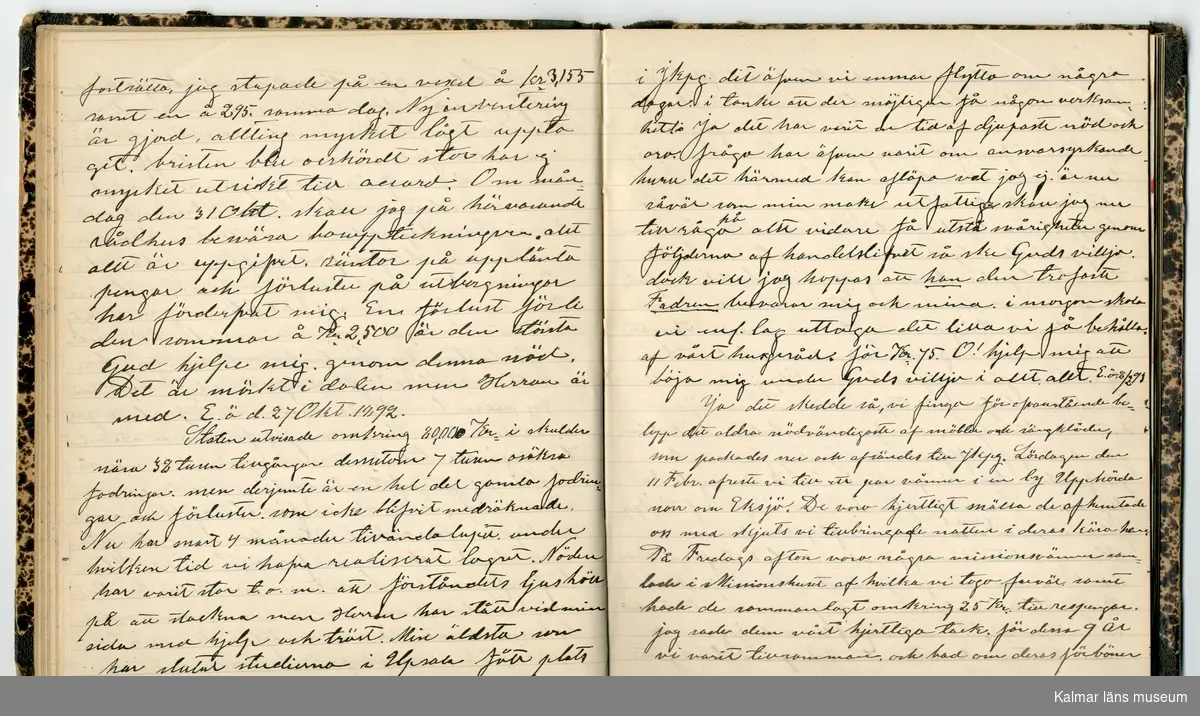 fortsätta, jag stupade på en vexel å kr 3,155
samt en å 295. samma dag. Ny inventering
är gjord, allting mycket lågt uppta
get. bristen blef oerhördt stor har ej
mycket utsikt till accord. Om mån-
dag den 31 Okt. skall jag på härvarande
rådhus besvära bouppteckningen, att
allt är uppgifvet. räntor på upplånta
pengar och förluster på utborgningar
har förderfvat mig. En förlust förli
den sommar å Kr. 2,500 är den största
Gud hjelpe mig genom denna nöd.
Det är mörkt i dalen men Herran är
med. E. ö d. 27 Okt. 1892.
Staten utvisade omkring 80,000 Kr. i skulder
nära 38 tusen tillgångar dessutom 7 tusen osäkra
fodringar. men derjemte är en hel del gamla fodrin-
gar och förluster. som icke blifvit medräknade.
Nu har snart 4 månader tilländalupit. under
hvilken tid vi hafva realiserat lagret. Nöden
har varit stor t.o.m. att förståndets ljus höll
på att slockna men Herran har stått vid min
sida med hjelp och tröst. Min äldsta son
har slutat studierna i Upsala fått plats
i Jkpg. dit äfven vi ernar flytta om några
dagar. i tanke att der möjligen få någon verksam-
het Ja det har varit en tid af djupaste nöd och
oro. fråga har äfven varit om ansvarsyrkande
huru det härmed kan aflöpa vet jag ej. är nu
såväl som min maka utfattig skall jag nu
till råga på allt vidare få utstå svårigheter genom
följderna af handelslifvet så ske Guds vilja.
dock vill jag hoppas att han den trofaste
Fadren bevarar mig och mina. i morgon skola
vi enl. lag uttaga det lilla vi få behålla
af vårt husgråd. för Kr. 75. O! hjelp mig att
böja mig under Guds vilja i allt allt. E. ö. 8/2 93
Ja det skedde så, vi finga för ofvanstående be-
lopp det aldra nödvändigaste af möbler och sängkläder,
som packades ner och afsändes till Jkpg. Lördagen den
11 Febr. afreste vi till ett par vänner i en by Upphörda
norr om Eksjö. De voro hjertligt snälla de afhemtade
oss med skjuts vi tillbringade natten i deras kära hem
Då Fredags afton voro några missionsvänner sam-
lade i Missionshuset af hvilka vi togo farväl, samt
hade de sammanlagt omkring 25 Kr. till respengar.
jag sade dem vårt hjertliga tack. för dessa 9 år
vi varit tillsamman, och bad om deras förböner
Kalmar läns museum